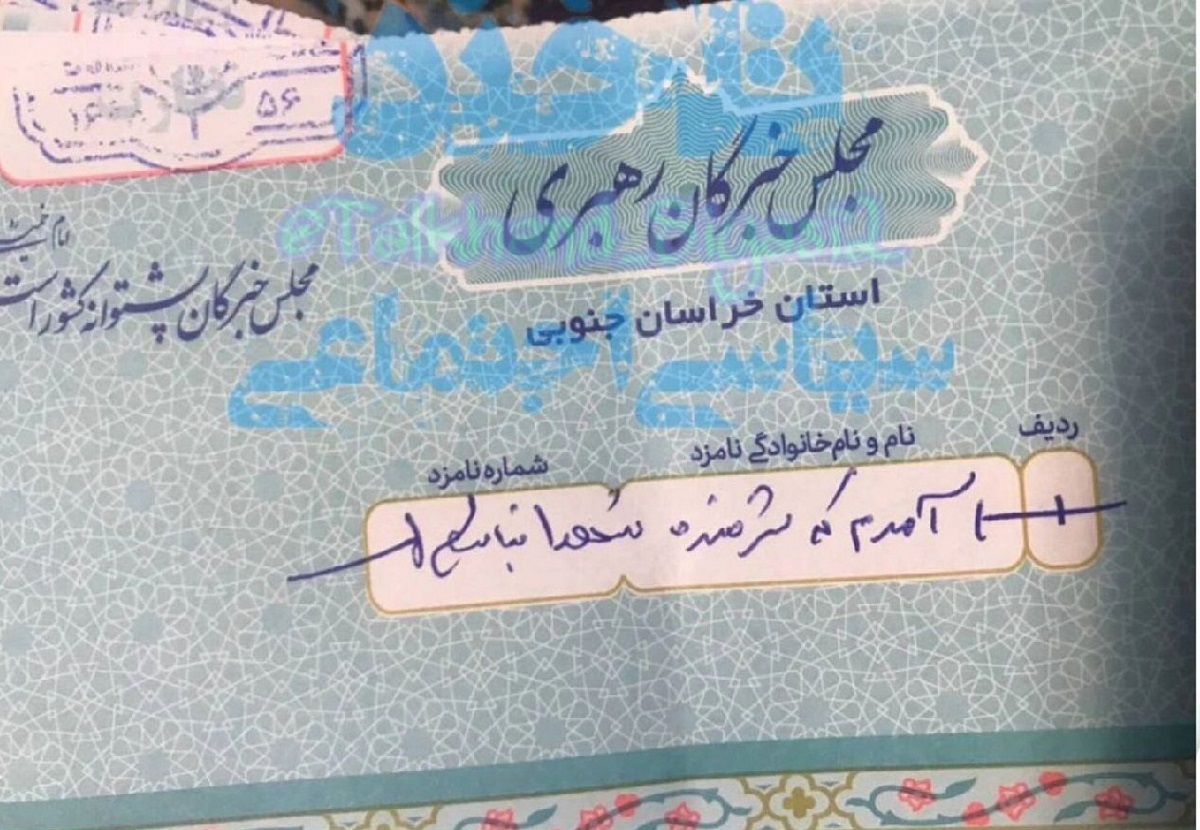 تلخند
۵۶
مجلس خبرگان رهبری
@Talkhand_Siyasi
امام خمینی
مجلس خبرگان پشتوانه کشور است
استان خراسان جنوبی
سیاسی اجتماعی
ردیف نام و نام‌خانوادگی نامزد شماره نامزد
آمدم که شرمنده شهدا نباشم